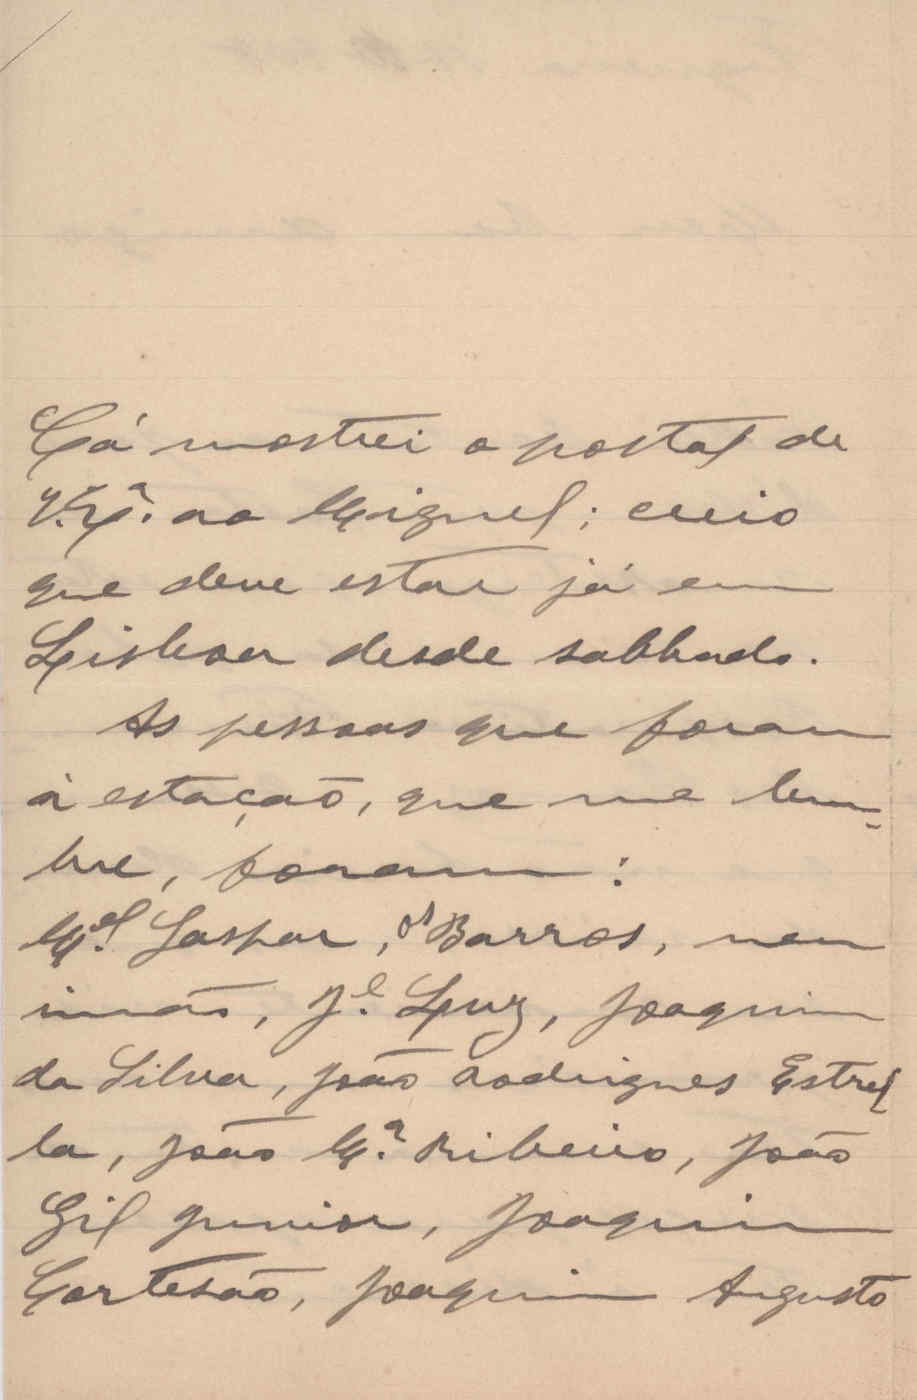 Cá mostrei o postal de
V. Ex.ª ao Miguel; creio
que deve estar já em
Lisboa desde sabbado.
As pessoas que foram
á estação, que me lem-
bre, foram:
M.el Gaspar, os Barros, meu
irmão, J.e Luz, Joaquim
da Silva, João Rodrigues Estrel-
la, João M.ª Ribeiro, João
Gil junior, Joaquim
Cortesão, Joaquim Augusto